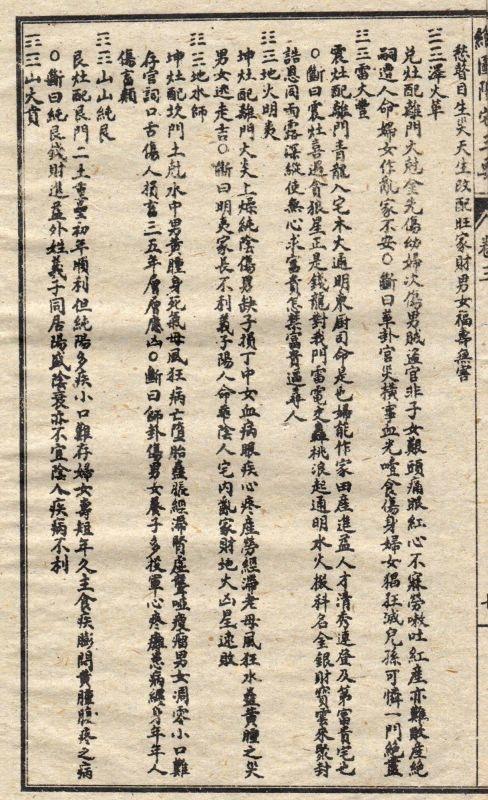 繪圖陽宅三要 卷三 七
愁替日生災天生改配旺家財男女福壽無害
☱☲澤火革
兌灶配離門火尅金先傷幼婦次傷男賊盜官非子女艱頭痛眼紅心不寐勞嗽吐紅産亦難敗産絕
嗣遭人命婦女作亂家不安○斷曰革卦官災橫事血光嗌食傷身婦女猖狂滅兒孫可憐一門絕盡
☳☲雷火豐
震灶配離門青龍入宅木火通明東厨司命是也婦能作家田産進益人才清秀連登及第富貴宅也
○斷曰震灶喜逢貪狼星正是錢龍對我門雷電交轟桃浪起通明水火掇科名金銀財寶雲來聚封
誥恩同雨露深縱使無心求富貴怎禁富貴逼尋人
☷☲地火明夷
坤灶配離門火炎上燥純陰傷男缺子損丁中女血病眼疾心疼産勞經滯老母風狂水蠱黃腫之災
男女逃走吉○斷曰明夷家長不利義子陽人命乖陰人宅內亂家財地火凶星速敗
☷☵地水師
坤灶配坎門土尅水中男黃腫身死氣母風狂病亡墮胎蠱脹經滯腎虛聾啞瘦瘤男女凋零小口難
存官詞口舌傷人損畜三五年層層應凶○斷曰師卦傷男女養子多投軍心疼癱患病纏身年年人
傷畜顛
☶☶山山純艮
艮灶配艮門二土重疊初年順利但純陽多疾小口難存婦女壽短年久主食疾膨悶黃腫脹痰之病
○斷曰純艮錢財進益外姓義子同居陽盛陰衰亦不宜陰人疾病不利
☶☲山火賁